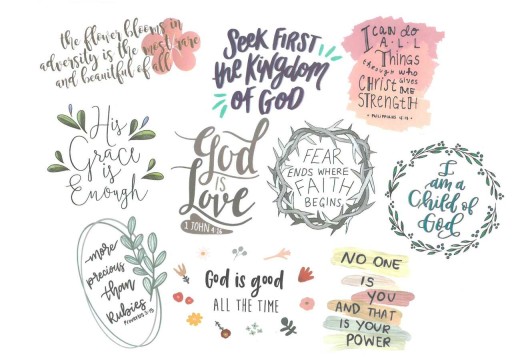 the flower blooms in
adversity is the most rare
and beautiful of all
SEEK FIRST
the KINGDOM
OF GOD
I CAN do
A·L·L
THINGS
through who
CHRIST GIVES ME
STRENGTH
PHILIPPIANS 4:13
His
Grace
is
Enough
God
IS
Love
1 JOHN 4:16
FEAR
ENDS WHERE
FAITH
BEGINS
I
am a
Child of
God
more
precious
than
Rubies
PROVERBS 3:15
God is good
ALL THE TIME
NO ONE
IS
YOU
AND THAT
IS YOUR
POWER